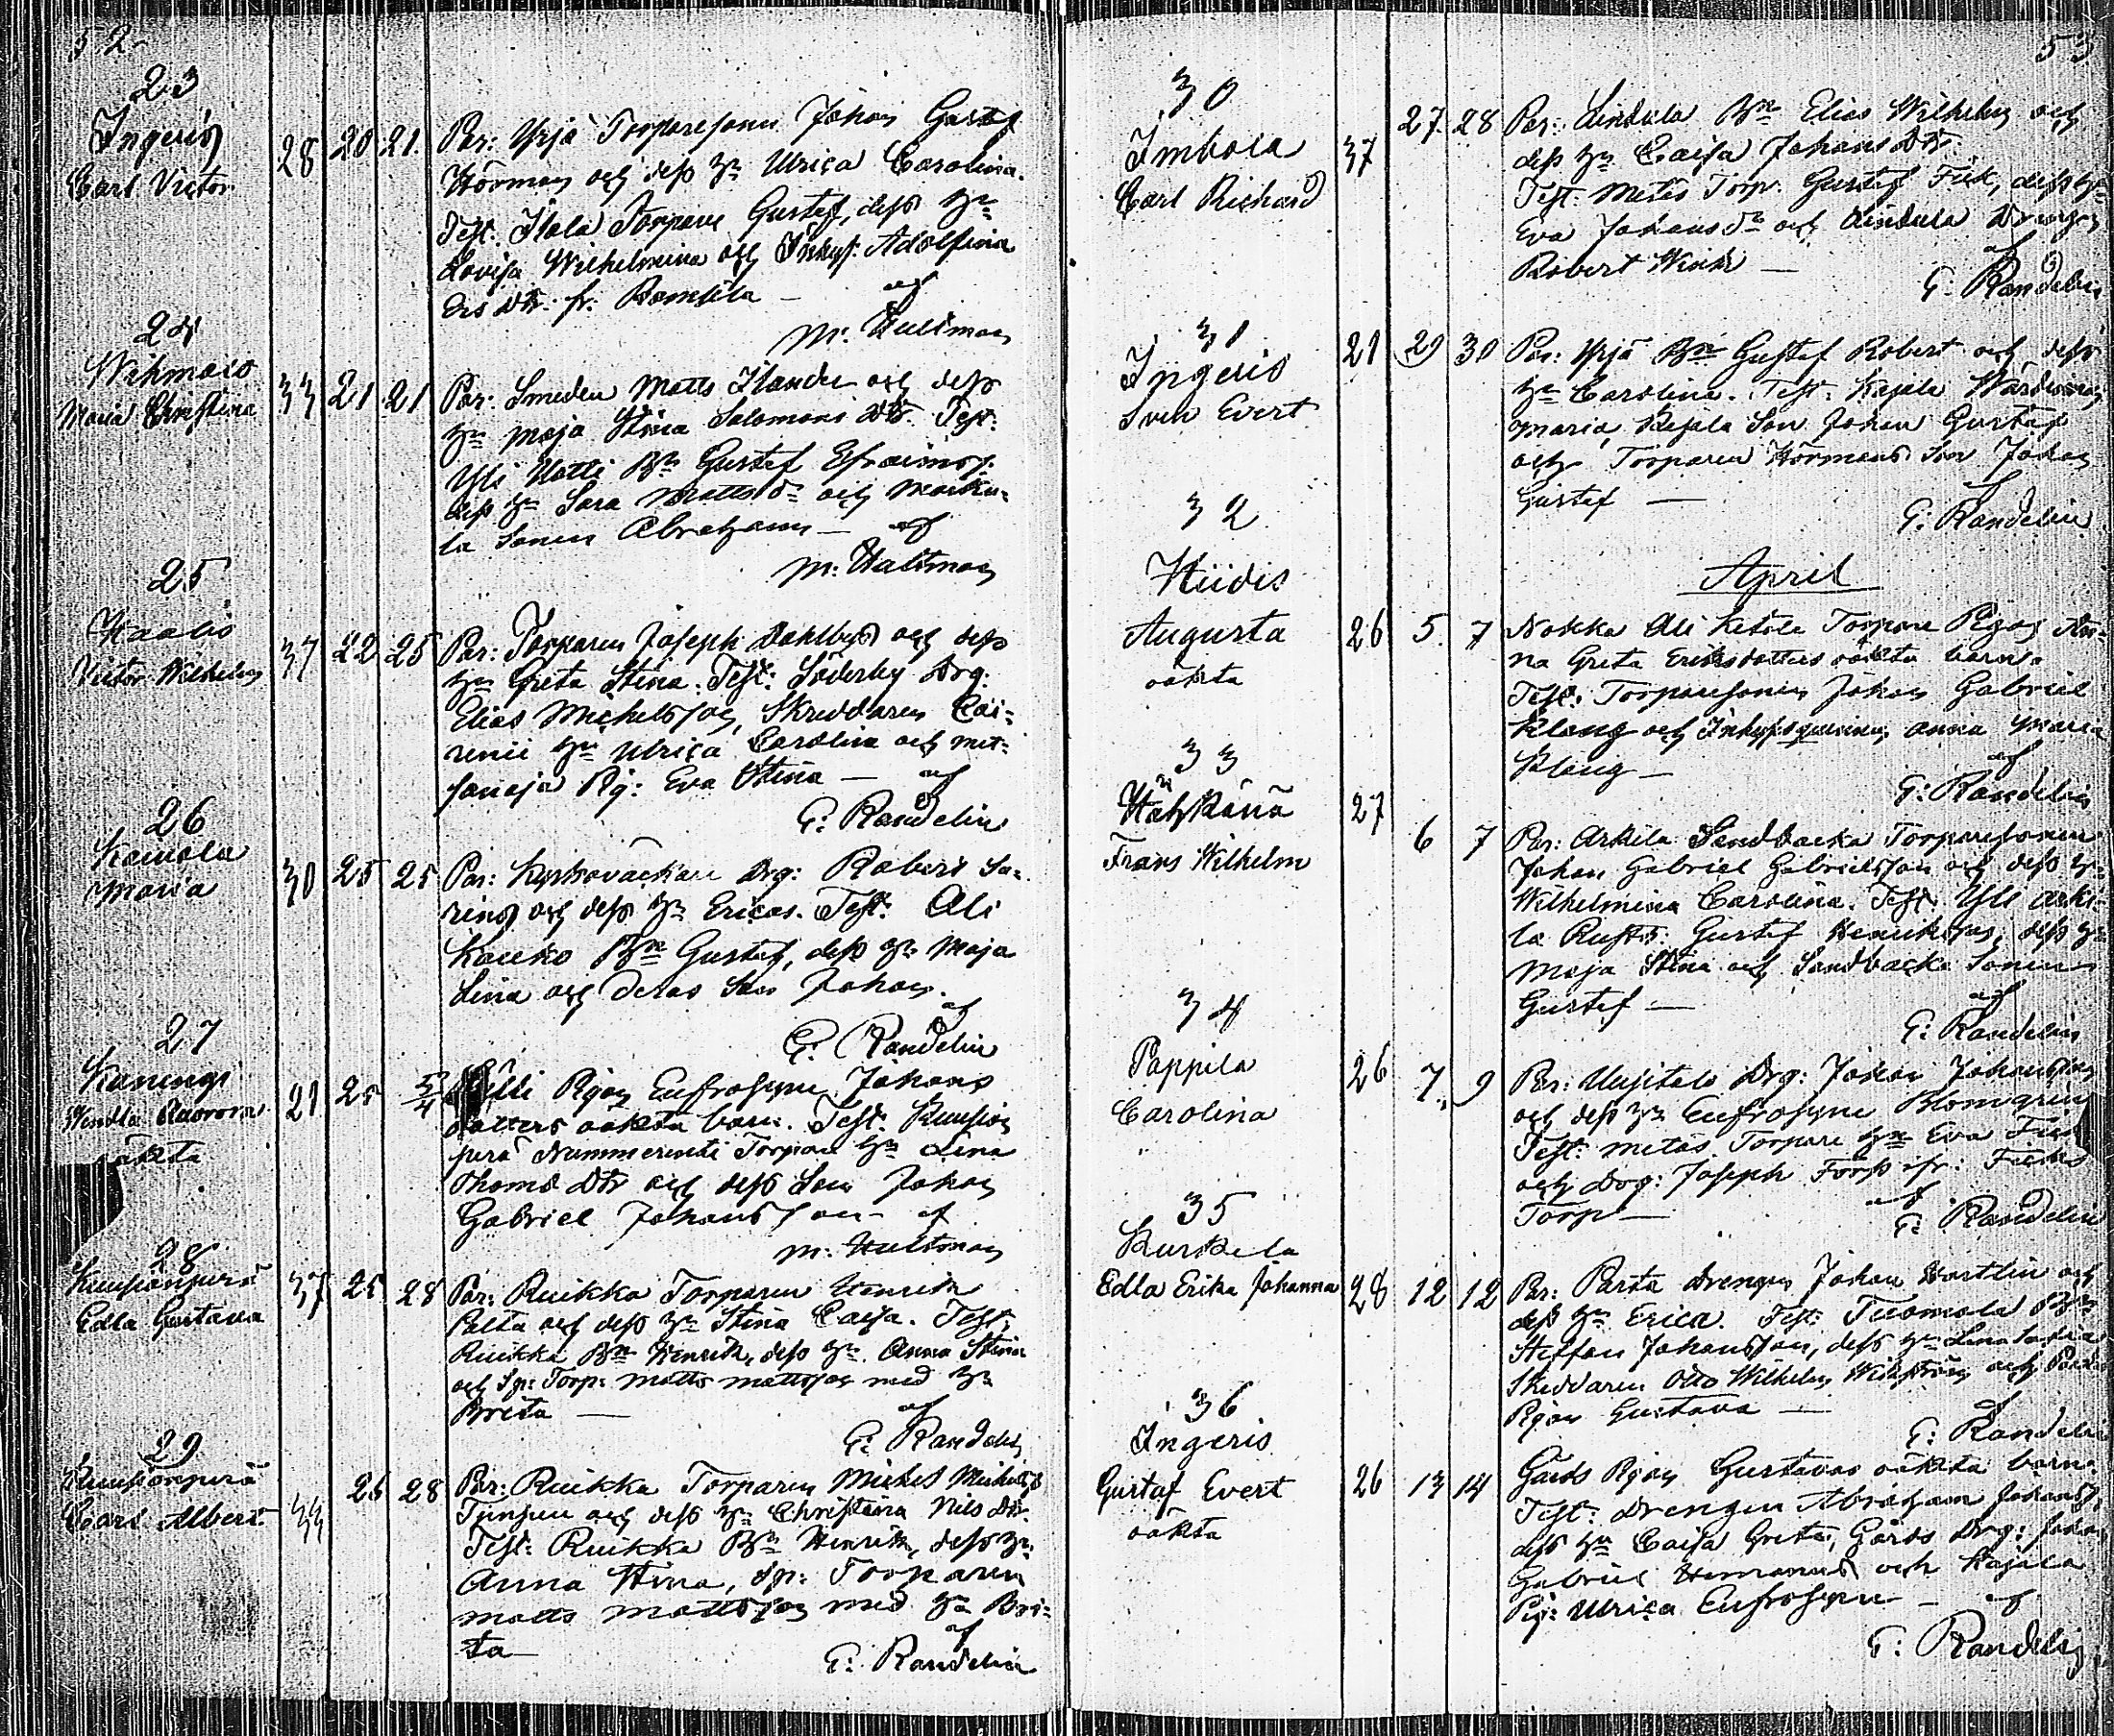 52
23
Ingeris
Carl Victor
28 20 21
Par: Yrjä Torparesonen Johan Gustaf
Hörman och dess hu Ulrica Carolina.
Test. Torpare Gustaf, dess hu
Lovisa Wilhelmina och Inhys: Adolfina
Ers Dtr. fr.
af
M: Hultman
24
Wihmais
Maria Christina
33 21 21
Par: Smeden Matts Ilander och dess
hu Maja Stina Salomons Dtr. Test:
Yli Bn Gustaf Efraimss:
dess hu Sara Matts dr och
la Sonen Abraham — af
M: Hultman
25
Victor Wilhelm
37 22 25
Par: Torparen Joseph Dahlberg och dess
hu Greta Stina. Test: Söderby Drg:
Elias Michelsson, Skreddaren
hu Ulrica Carolina och
Pig: Eva Stina — af
G: Randelin
26
Komola
Maria
30 25 25
Par: Kyrkobackan Drg: Robert
och dess hu Ericas. Test: Ali
Kouko Bn Gustaf, dess hu Maja
Lina och deras Son Johan.
af
G: Randelin
27
Wendla Aurora
oäkta
21 25 5/4
Pigan Eufrosyne Johans
dotters oäkta barn. Test:
Nummerenti Torpare hu Lina
Thoms Dtr och dess Son Johan
Gabriel Johansson - af
M: Hultman
28
Edla Gustava
37 25 28
Par: Ruikka Torparen Henrik
Palta och dess hu Stina Caisa. Test:
Ruikka Bn Henrik, dess hu Anna Stina
och Sp: Torp: Matts Mattsson med hu
Brita —
af
G: Randelin
29
Kuusionperä
Carl Albert
33 26 28
Par: Ruikka Torparen Michel Michelss:
och dess hu Christina Nils Dtr.
Test: Ruikka Bn Henrik, dess hu
Anna Stina, Sp: Torparen
Matts Mattsson med hu Bri-
ta —
af
G: Randelin
53
30
Imbola
Carl Richard
37 27 28
Par: Lindula Bn Elias Wilhelm och
dess hu Caisa Johans Dtr.
Test: Metäs Torp. Gustaf Fisk, dess hu
Eva Johans dr och Lindula Drengen
Robert —
af
G: Randelin
31
Ingeris
Sven Evert
21 29 30
Par: Yrjä Bn Gustaf Robert och dess
hu Carolina. Test: Kajala
Maria, Kajala Son Johan Gustaf
och Torparen Hörmans Son Johan
Gustaf —
G: Randelin
April
32
Hiidis
Augusta
oäkta
26 5 7
Nokka Ali Ketola Torpare Pigan An-
na Greta Eriksdotters oäkta barn.
Test: Torparesonen Johan Gabriel
Klang och Inhysesqvinnan Anna Maria
Klang —
af
G: Randelin
33
Hähkänä
Frans Wilhelm
27 6 7
Par: Arkila Sandbacka Torparesonen
Johan Gabriel Gabrielsson och dess hu
Wilhelmina Carolina. Test: Yli Arki-
la Rusth: Gustaf Henriksson, dess hu
Maja Stina och Sandbacka Sonen
Gustaf —
af
G: Randelin
34
Pappila
Carolina
26 7 9
Par: Uusitalo Drg: Johan Johansson
och dess hu Eufrosyne Blomgren
Test: Metäs Torpare hu Eva Fisk
och Drg: Joseph Forss ifr: Fisks
Torp —
af
G: Randelin
35
Kurkela
Edla Erika Johanna
28 12 12
Par: Parta Drengen Johan Hartlin och
dess hu Erica. Test: Tuomola Bn
Steffan Johansson, dess hu Lena
Skreddaren Otto Wilhelm Wikström och
Pigan Gustava —
af
G: Randelin
36
Ingeris
Gustaf Evert
oäkta
26 13 14
Gårds Pigan Gustavas oäkta barn.
Test: Drengen Abraham Johanss:
dess hu Caisa Greta, Gårds Drg: Johan
Gabriel Hemanus och Kajala
Pig: Ulrica Eufrosyne — af
G: Randelin